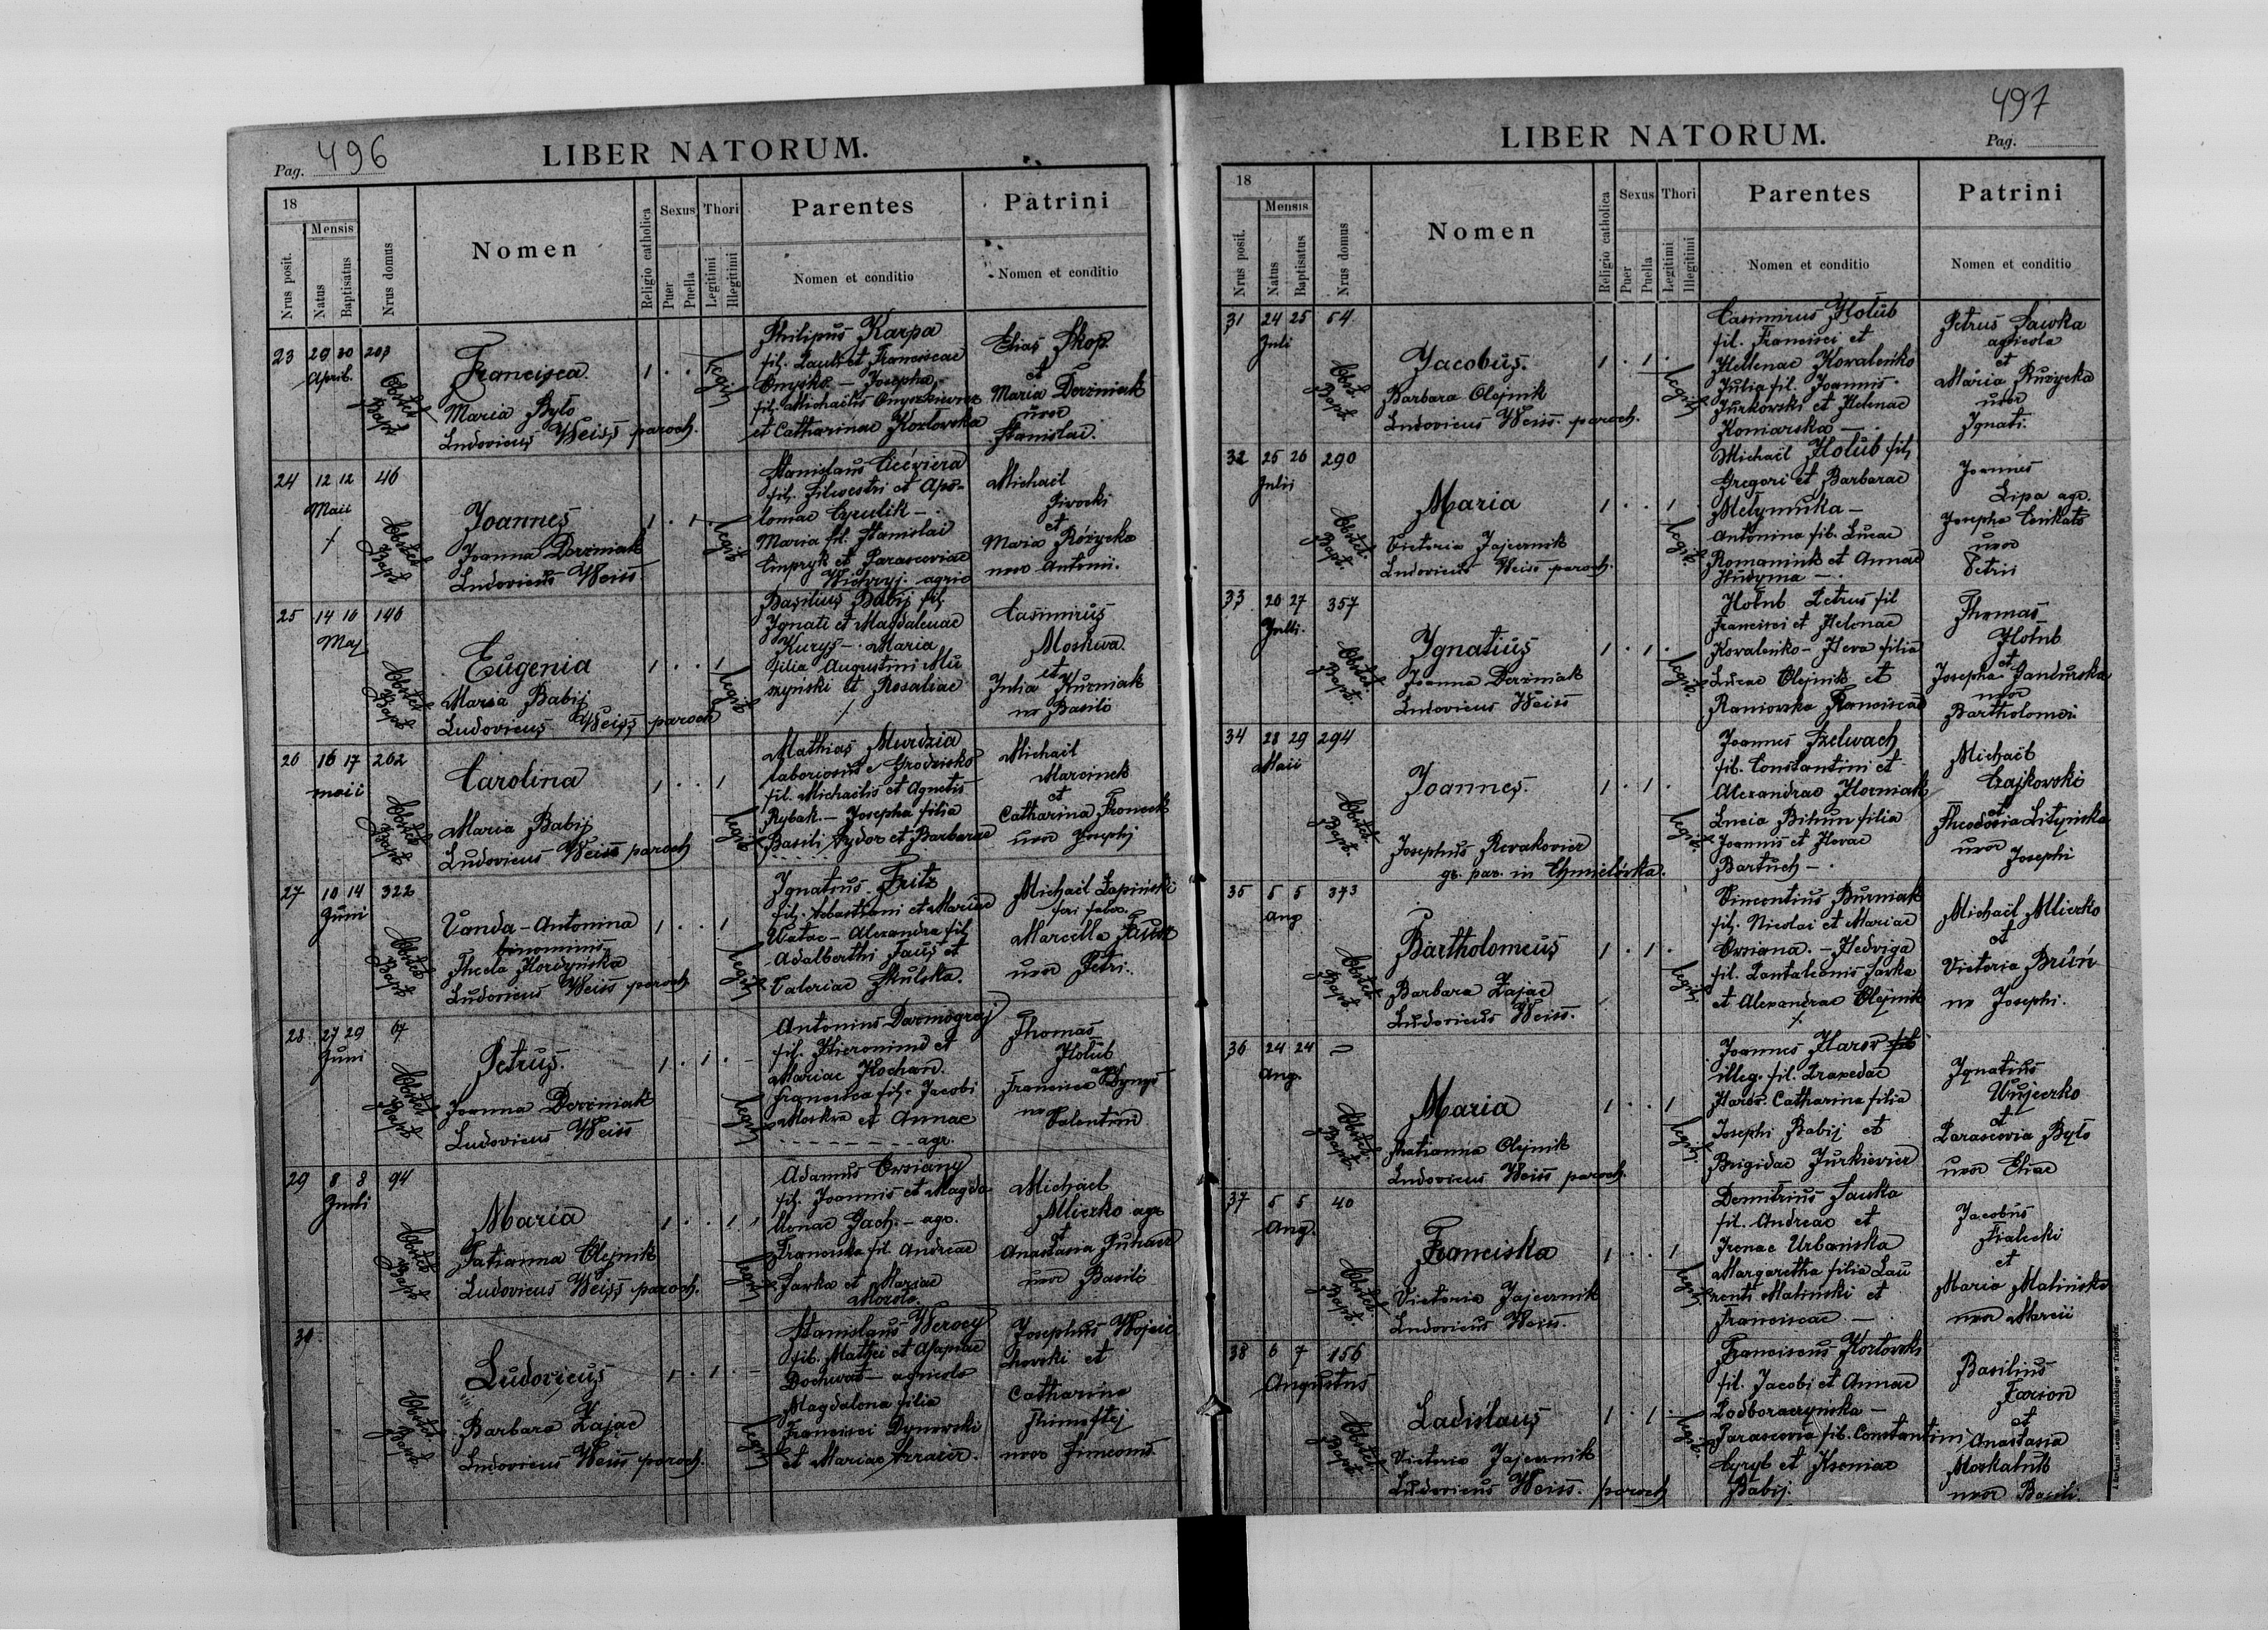 496
Pag.
LIBER NATORUM.
18
Mensis
Nrus posit.
Natus
Baptisatus
Nrus domus
Nomen
Religio catholica
Sexus
Puer
Puella
Thori
Legitimi
Illegitimi
Parentes
Nomen et conditio
Patrini
Nomen et conditio
23 29 30
April.
Francisca
Maria Było
Ludovicus Weiss paroch.
Obstet.
Bapt.
legit.
Philipus Karpa
fil. Pauli et Franciscae
Onyśko - Josepha
fil. Michaelis Onyszkiewicz
et Catharinae Kozłovska
Elias Skop
et
Maria Derżniak
uxor
Stanislai.
24 12 12 46
Maii
Joannes
Joanna Derżniak
Ludovicus Weiss
Obstet.
Bapt.
legit.
Stanislaus
fil. Silvestri et Apo-
loniae Cyrulik -
Maria fil. Stanislai
et Parascoviae
agric
Michael
et
Maria Różycka
uxor Antonii.
25 14 16 146
Maj
Eugenia
Maria Babij
Ludovicus Weiss paroch
Obstet.
Bapt.
legit.
Basilius Babij fil.
Ignati et Magdalenae
Kurys - Maria
filia Augustini Mu
szyński et Rosaliae
Casimirus
Moskwa
et
Julia Kuzniak
ux Basili
26 16 17 262
maii
Carolina
Maria Babij
Ludovicus Weiss paroch
Obstet.
Bapt.
legit.
Mathias Murdzia
laboriosus e Grodzisko
fil. Michaelis et Agnetis
Rybak. - Josepha filia
Basili Sydor et Barbarae
Michael
Marcinek
et
Catharina Fronczek
uxor Josephj
27 10 14 322
Juni
Vanda - Antonina
binominis
Thecla Hordyńska
Ludovicus Weiss paroch
Obstet.
Bapt.
legit.
Ignatius Fritz
fil. Sebastiani et Mariae
Watac - Alexandra fil.
Adalberthi Faus et
Valeriae Skulska.
Michael Łapiński
Marcella Faust
uxor Petri.
28 27 29 67
Juni
Petrus.
Joanna Derżniak
Ludovicus Weiss
Obstet.
Bapt.
legit.
Antonius Darmograj
fil. Hieronimi et
Mariae Kochan.
Francisca fil. Jacobi
Moskva et Annae
agr.
Thomas
Hołub
agr
Francisca
ux
Valentini
29 8 8 94
Juli
Maria
Tatianna Olejnik
Ludovicus Weiss paroch.
Obstet.
Bapt.
legit.
Adamus Orsiany
fil. Joannis et Magda
lenae Gach. - agr.
Franciska fil. Andreae
Savka et Mariae
Moroto
Michael
Mliczko agr
et
Anastasia
uxor Basili
30
Ludovicus
Barbara Zając
Ludovicus Weiss paroch.
Obstet.
Bapt.
legit.
Stanislaus
fil. Mathei et Agapiae
Dochwat - agricola
Magdalena filia
Francisci Dynovski
et Mariae
Josephus Wojcie
chovski et
Catharina
uxor Simeonis
497
LIBER NATORUM.
Pag.
18
Mensis
Nrus posit.
Natus
Baptisatus
Nrus domus
Nomen
Religio catholica
Sexus
Puer
Puella
Thori
Legitimi
Illegitimi
Parentes
Nomen et conditio
Patrini
Nomen et conditio
31 24 25 64
Juli
Jacobus.
Barbara Olejnik
Ludovicus Weiss. paroch.
Obst.
Bapt.
legit.
Casimirus Hołub
fil. Francisci et
Hellenae Kovaleńko
Julia fil. Joannis
Jurkovski et Helenae
Koniarska -
Petrus Sawka
agricola
et
Maria Rużycka
uxor
Ignati.
32 25 26 290
Julii
Maria
Victoria Jajecznik
Ludovicus Weiss paroch.
Obstet.
Bapt.
legit.
Michael Hołub fil.
Gregori et Barbarae
Antonina fil. Lucae
Romaniuk et Annae
Hudyma -
Joannes
Lipa agr.
Josepha
uxor
Petrii
33 26 27 357
Julii.
Ignatius
Joanna Derżniak
Ludovicus Weiss
Obstet.
Bapt.
legit.
Hołub Petrus fil
Francisci et Helenae
Kovalenko - Heva filia
Lucae Olejnik et
Raniovska Franciscae
Thomas
Hołub
et
Josepha
uxor
Bartholomei
34 28 29 294
Maii
Joannes.
Josephus Revakovicz
gr. par. in Chmielówka.
Obstet.
Bapt.
legit.
Joannes
fil. Constantini et
Alexandrae Horniak
Lucia Bihun filia
Joannis et Hevae
Bartuch -
Michael
Czajkovski
et
Theodosia Lityńska
uxor
Josephi
35 5 5 343
Aug
Bartholomeus
Barbara Zając
Ludovicus Weiss.
Obstet.
Bapt.
legit.
Vincentius Burniak
fil. Nicolai et Mariae
Orsiana. - Hedviga
fil. Pantaleonis Savka
et Alexandrae Olejnik
Michael Mliczko
et
Victoria Bruń
ux Josephi.
36 24 24
Aug.
Maria
Thatianna Olejnik
Ludovicus Weiss paroch.
Obstet.
Bapt.
legit.
Joannes Harov
illeg. fil. Praxedae
Harov. Catharina filia
Josephi Babij et
Brigidae Jurkievicz
Ignatius
Wujeczko
et
Parascovia Było
uxor Eliae
37 5 5 40
Aug.
Franciska
Victoria Jajecznik
Ludovicus Weiss.
Obstet.
Bapt.
legit.
Demitrius Sauka
fil. Andreae et
Irenae Urbańska
Margaretha filia Lau
renti Maliński et
Franciscae -
Jacobus
Fiałecki
et
Maria Malińska
uxor Marcii
38 6 7 156
Augustus
Ladislaus
Victoria Jajecznik
Ludovicus Weiss. paroch
Obstet.
Bapt.
legit.
Franciscus Kozłovski
fil. Jacobi et Annae
Podboraczynska -
Parascovia fil. Constantini
Cyryl et Kseniae
Babij.
Basilius
Farion
et
Anastasia
Moskaluk
uxor Basili.